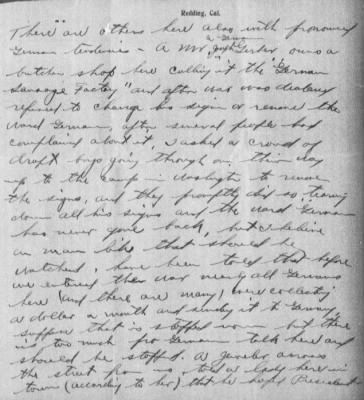 Redding, Cal.
There are others here also with pronounced
German tendencies - A Mr. Jos Gerber owns a
a German
butcher shop here calling it the "German
Sausage Factory" and after war was declared
refused to change his signs or remove the
word German, after several people had
complained about it, I asked a crowd of
draft boys going through on their way
up to the camp in Washington to remove
the signs, and they promptly did so, tearing
down all his signs and the word "German"
has never gone back, but I believe
an man like that should be
watched, have been told that before
we entered the war nearly all Germans
here (and there are many) were collecting
a dollar a month and sending it to Germany,
suppose that is stopped now but there
is too much pro German talk here and
should be stopped. A jeweler across
the street from us, told a lady here in
town (according to her) that he hoped President